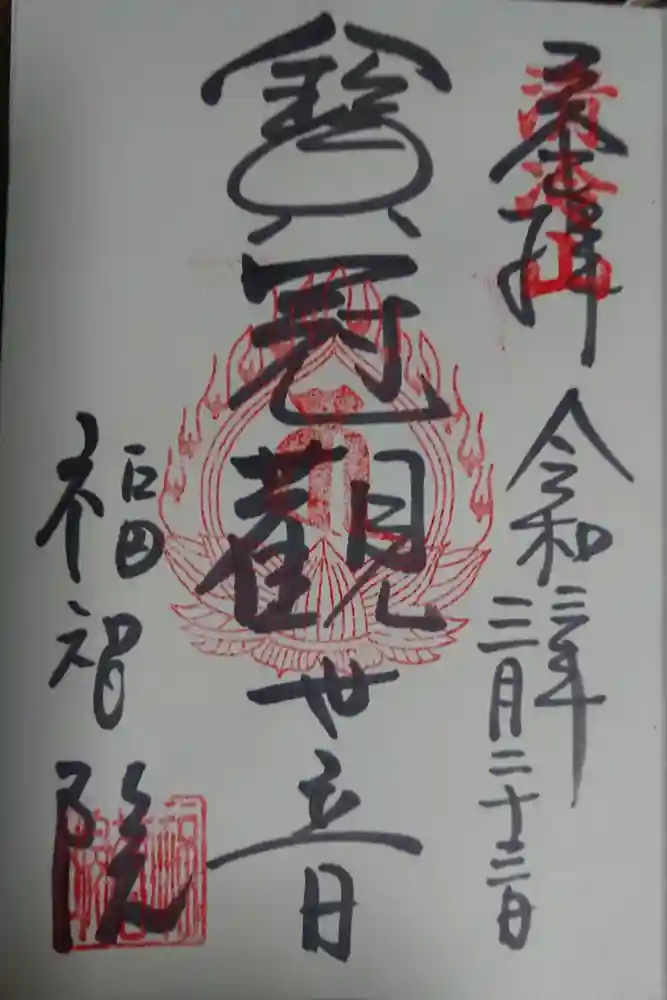 奉拝
令和三年
三月二十三日
寶冠觀世音
福智院